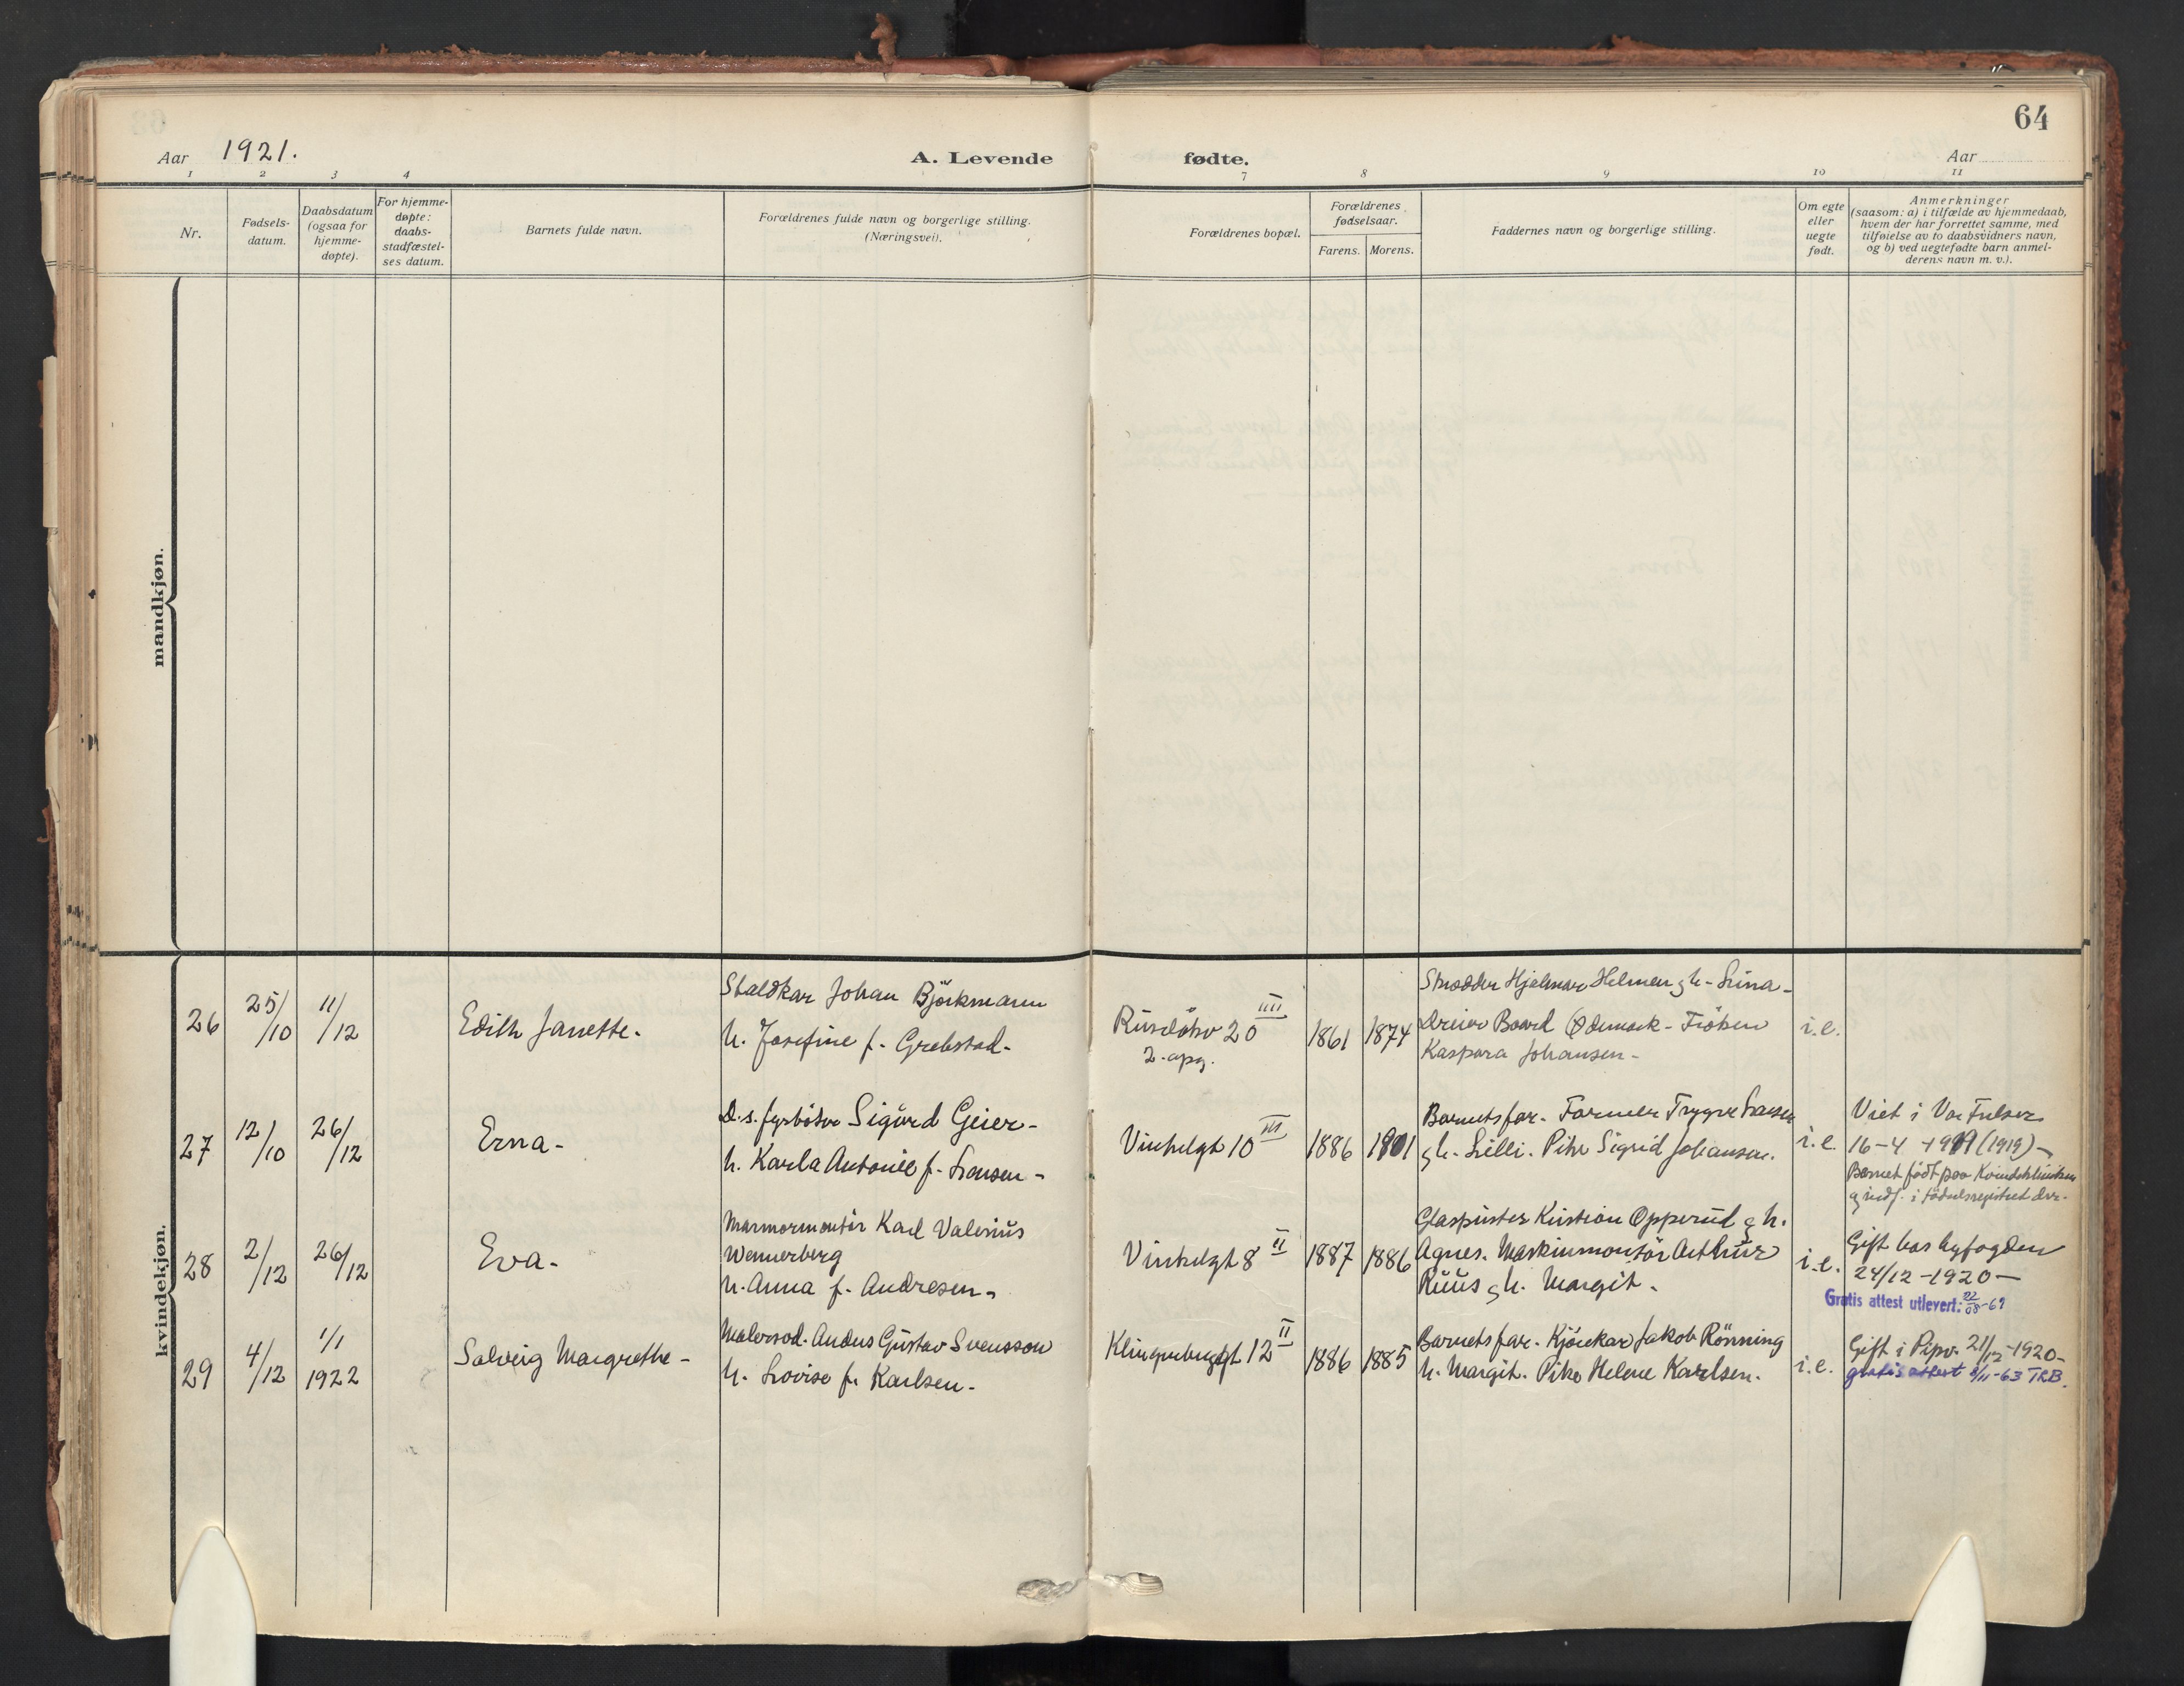 64
Aar 1921.
A. Levende fødte.
Aar
1 2 3 4 7 8 9 10 11
Nr.
Fødsels-
datum.
Daabsdatum
(ogsaa for
hjemme-
døpte).
For hjemme-
døpte:
daabs-
stadfæstel-
ses datum.
Barnets fulde navn.
Forældrenes fulde navn og borgerlige stilling.
(Næringsvei).
Forældrenes bopæl.
Forældrenes
fødselsaar.
Farens. Morens.
Faddernes navn og borgerlige stilling.
Om egte
eller
uegte
født.
Anmerkninger
(saasom: a) i tilfælde av hjemmedaab,
hvem der har forrettet samme, med
tilføielse av to daabsvidners navn,
og b) ved uegtefødte barn anmel-
derens navn m. v.).
mandkjøn.
kvindekjøn.
26
25/10
11/12
Edith Janette.
Staldkar Johan Björkmann
h. Josefine f. Grebstad.
Ruseløkv 20 IIII
2. opg.
1861
1874
Skrædder Hjalmar Helmen g h. Lina.
Dreier Bård Ødemark. Frøken
Kaspara Johansen.
i.e.
27
12/10
26/12
Erna.
D.s. fyrbøter Sigurd Geier.
h. Karla Antonie f. Hansen.
Vinkelgt 10 III
1886
1901
Barnets far. Former Trygve Hansen
g h. Lilli. Pike Sigrid Johansen.
i.e.
Viet i Vor Frelser
16-4 1919 (1919)
Barnet født paa Kvindeklinikken
g indf. i fødselsregistret der.
28
2/12
26/12
Eva.
Marmormontør Karl Valerius
Wennerberg
h. Anna f. Andresen.
Vinkelgt 8 II
1887
1886
Glaspuster Kristian Opperud g h.
Agnes. Maskinmontør Arthur
Ruus g h. Margit.
i.e.
Gift hos byfogden
24/12-1920
Gratis attest utlevert: 22/08-69
29
4/12
1/1
1922
Solveig Margrethe.
Malersvd. Anders Gustav Svensson
h. Lovise f. Karlsen.
Klingenberggt 12 II
1886
1885
Barnets far. Kjørekar Jakob Rönning
h. Margit. Pike Helene Karlsen.
i.e.
Gift i Pipv. 21/12-1920.
gratis attest 8/11-63 TRB.